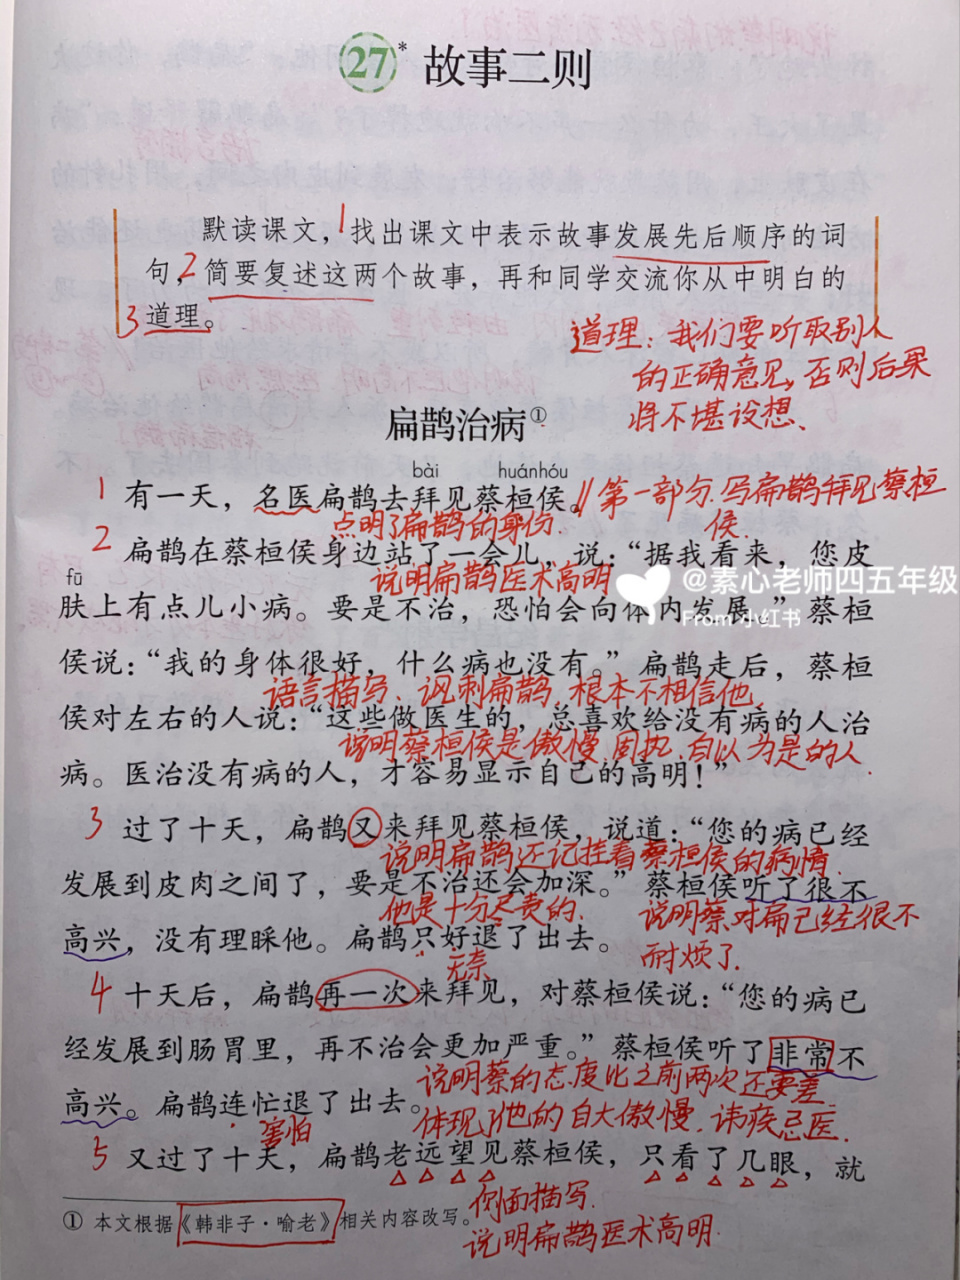 27* 故事二则
默读课文，1找出课文中表示故事发展先后顺序的词
句，2简要复述这两个故事，再和同学交流你从中明白的
3道理。
道理：我们要听取别人
的正确意见，否则后果
将不堪设想．
扁鹊治病①
bài huánhóu
1 有一天，名医扁鹊去拜见蔡桓侯。∥第一部分．写扁鹊拜见蔡桓
侯．
点明了扁鹊的身份．
2 扁鹊在蔡桓侯身边站了一会儿，说：“据我看来，您皮
说明扁鹊医术高明
@素心老师四五年级
From 小红书
fū
肤上有点儿小病。要是不治，恐怕会向体内发展。”蔡桓
侯说：“我的身体很好，什么病也没有。”扁鹊走后，蔡桓
语言描写．讽刺扁鹊．根本不相信他．
侯对左右的人说：“这些做医生的，总喜欢给没有病的人治
说明蔡桓侯是傲慢、固执、自以为是的人．
病。医治没有病的人，才容易显示自己的高明！”
3 过了十天，扁鹊又来拜见蔡桓侯，说道：“您的病已经
说明扁鹊还记挂着蔡桓侯的病情．
发展到皮肉之间了，要是不治还会加深。”蔡桓侯听了很不
他是十分尽责的．
说明蔡对扁已经很不
耐烦了．
高兴，没有理睬他。扁鹊只好退了出去。
无奈
4 十天后，扁鹊再一次来拜见，对蔡桓侯说：“您的病已
经发展到肠胃里，再不治会更加严重。”蔡桓侯听了非常不
说明蔡的态度比之前两次还要差．
高兴。扁鹊连忙退了出去。
体现了他的自大傲慢．讳疾忌医．
害怕
5 又过了十天，扁鹊老远望见蔡桓侯，只看了几眼，就
侧面描写．
说明扁鹊医术高明．
① 本文根据《韩非子·喻老》相关内容改写。